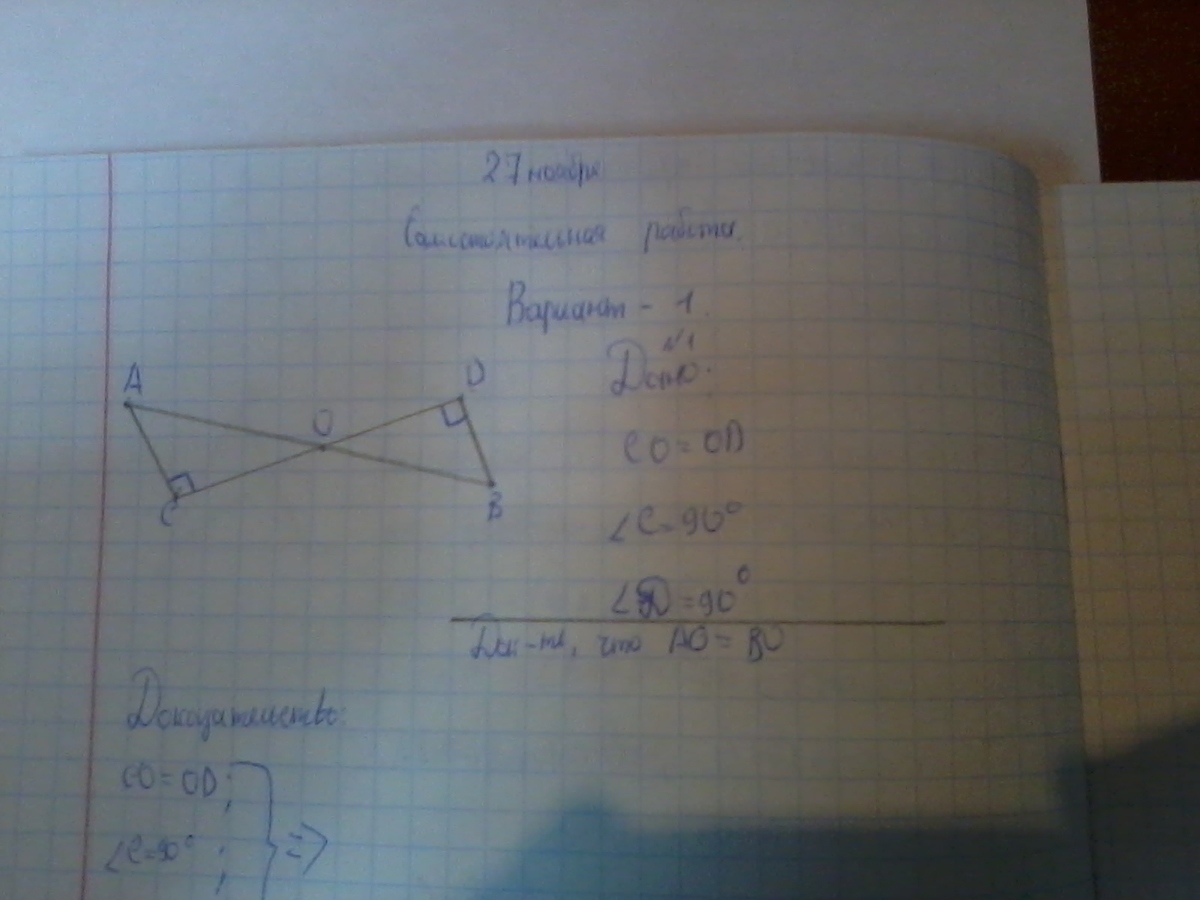 27 ноября
Самостоятельная работа.
Вариант - 1.
№1
Дано:
A
D
O
C
B
CO = OD
∠C = 90°
∠D = 90°
Док-ть, что AO = BO
Доказательство:
CO = OD;
∠C = 90° ;
=>